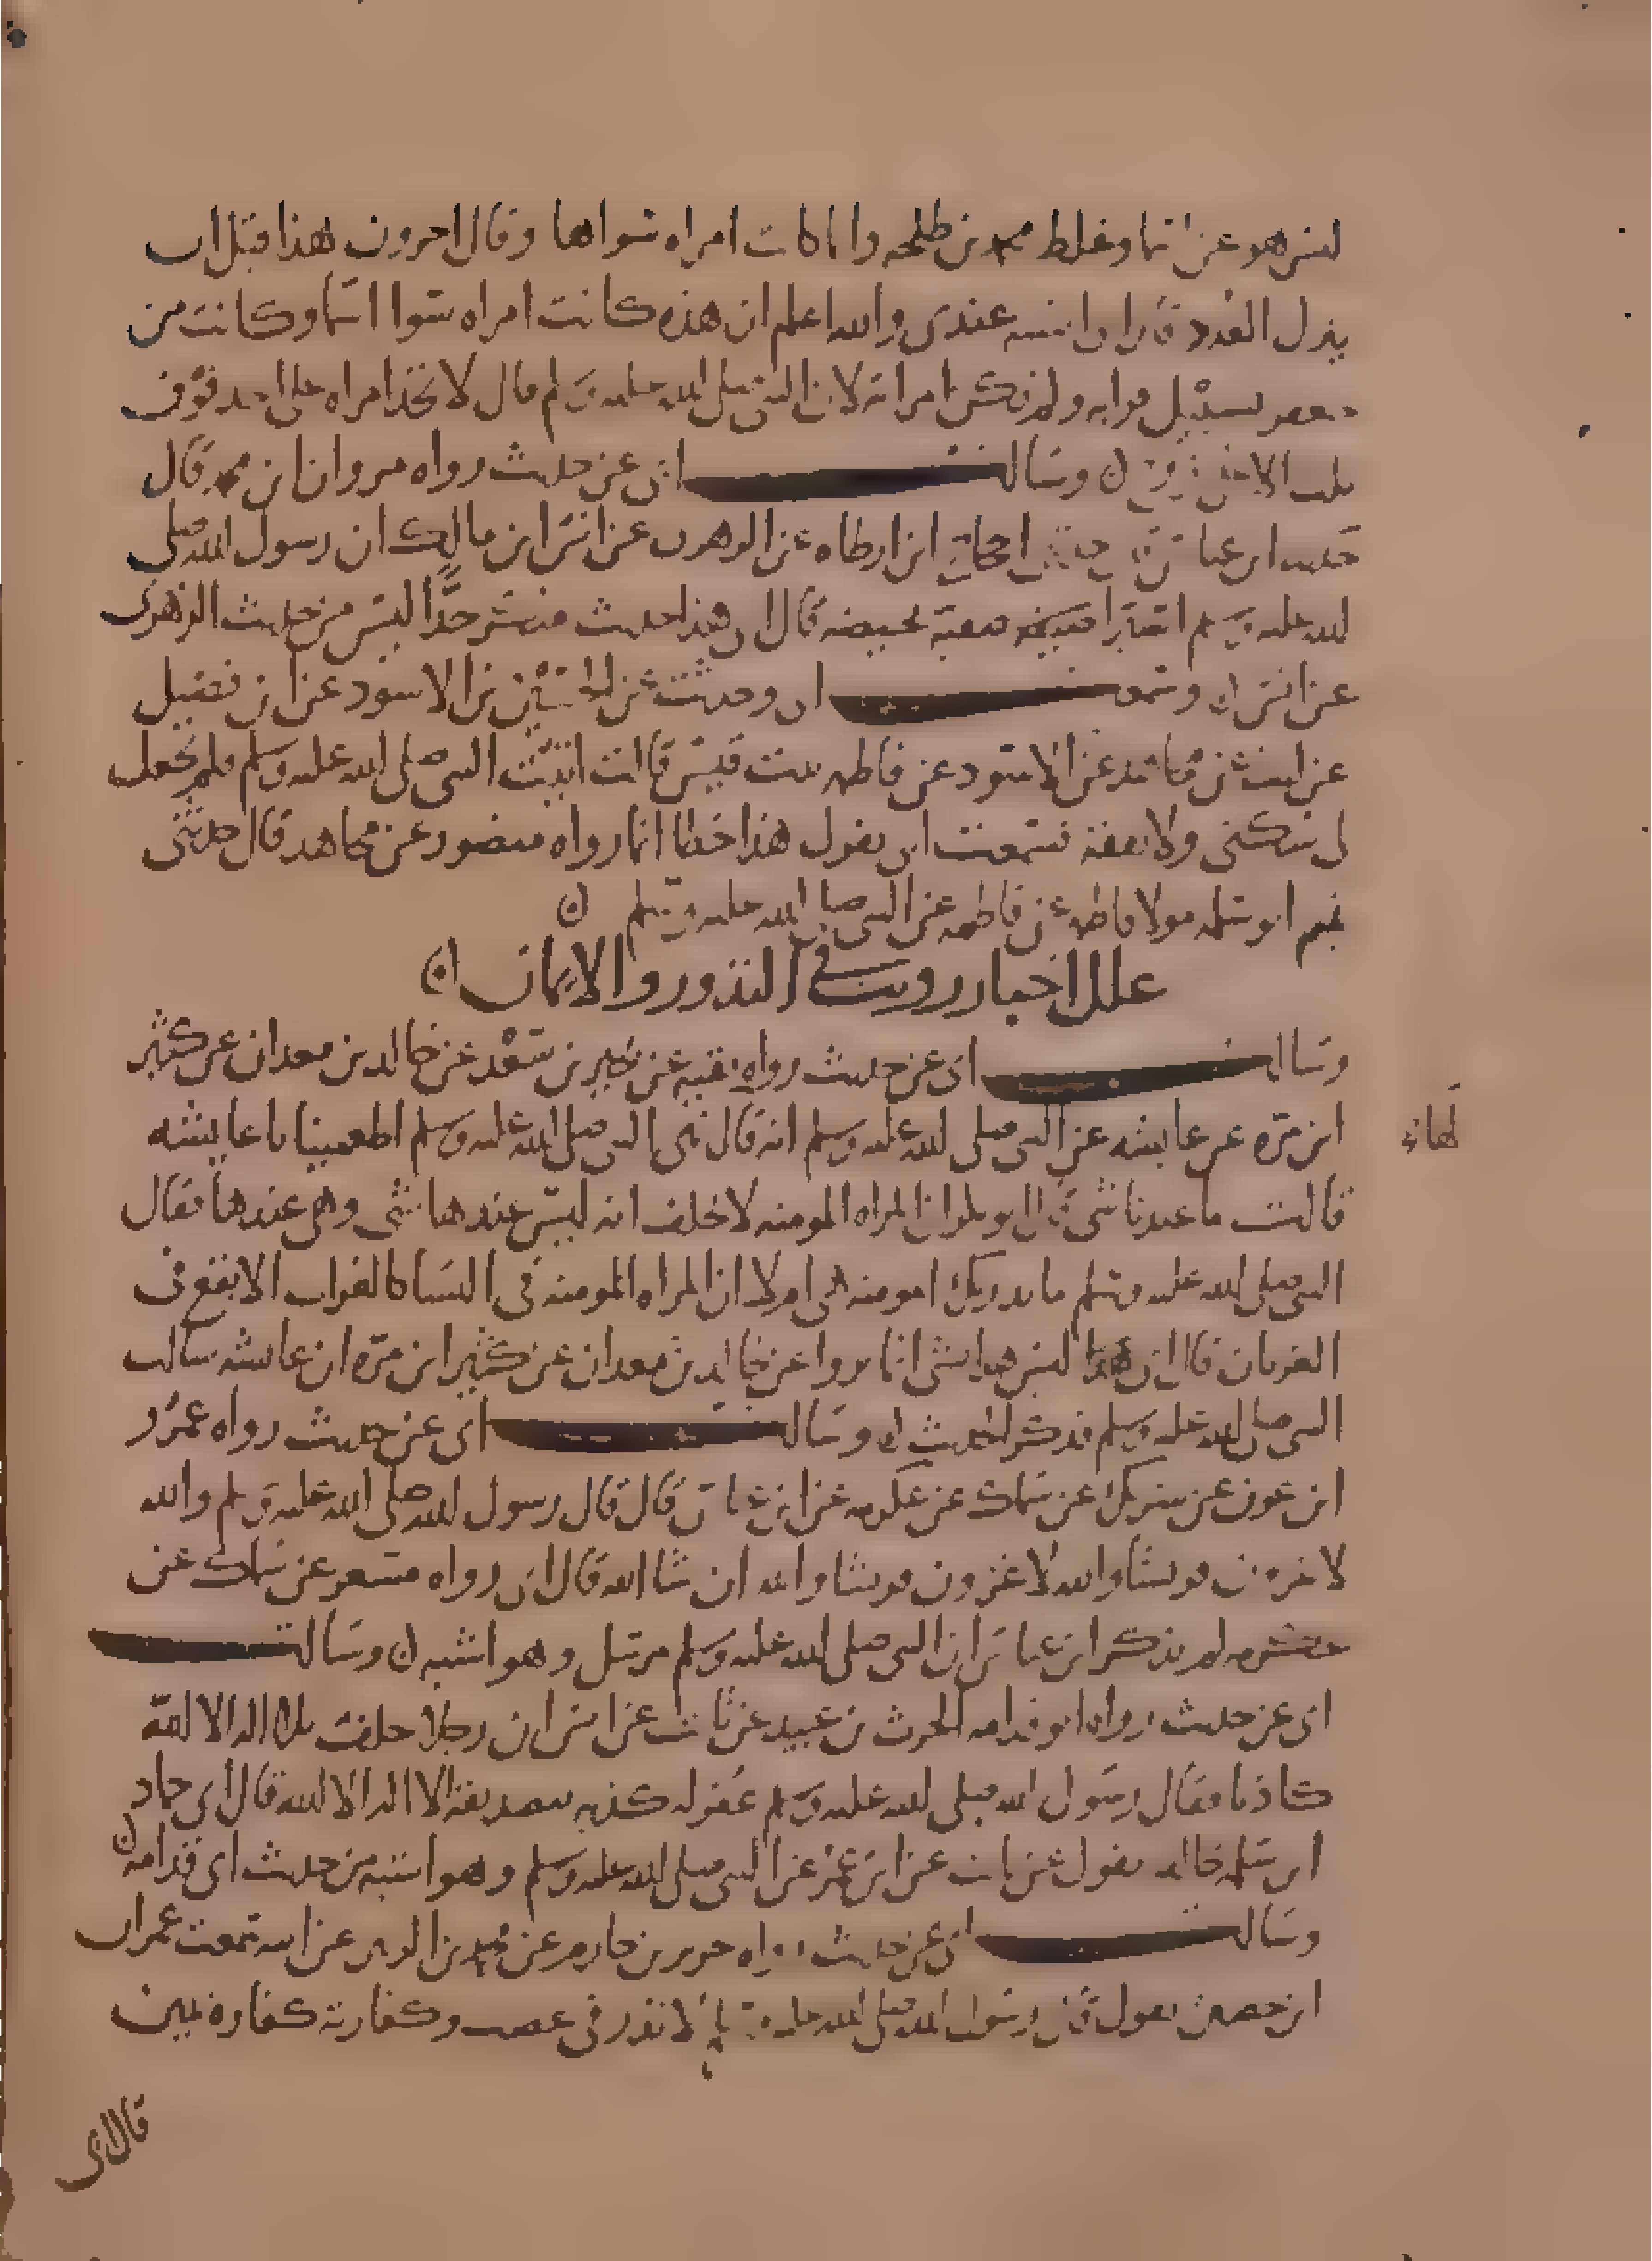 ليس هو عن اسما وغلط محمد بن طلحه وانما كانت امراه سواها وقال اخرون هذا قبل ان
ينزل العدد قال ابى اشبه عندى والله اعلم ان هذه كانت امراه سوا اسما وكانت من
جعفر بسبيل قرابه ولم تكن امراته لان النبى صلى الله عليه وسلم قال لا تحد امراه على احد فوق
ثلث الا على زوج ن وسالت ابى عن حديث رواه مروان ابن محمد قال
حدثنا ابن عياش قال حدثنى الحجاج ابن ارطاه عن الزهرى عن انس ابن مالك ان رسول الله صلى
الله عليه وسلم استبرا صفية بحيضه قال ابى هذا حديث منكر جدًّا ليس من حديث الزهرى
عن انس ن وسمعت ابى وحدثت عن الحسين بن الاسود عن ابن فضيل
عن ليث عن مجاهد عن الاسود عن فاطمه بنت قيس قالت اتيت النبى صلى الله عليه وسلم فلم يجعل
لى سكنى ولا نفقة فسمعت ابى يقول هذا خطا انما رواه منصور عن مجاهد قال حدثنى
تميم ابو سلمه مولا فاطمه عن فاطمه عن النبى صلى الله عليه وسلم ن
علل اخبار رويت فى النذور والايمان ن
وسالت ابى عن حديث رواه بقيه عن بحير بن سعْد عن خالد بن معدان عن كثير
ابن مرّه عن عايشه عن النبى صلى الله عليه وسلم انه قال نبى الله صلى الله عليه وسلم اطعمينا يا عايشه
لها
قالت ما عندنا شى قال ابو بكر ان المراه المومنه لا تحلف انه ليس عندها شى وهى عندها فقال
النبى صلى الله عليه وسلم ما يدريك امومنه هى ام لا ان المراه المومنه فى النسا كالغراب الابقع فى
الغربان قال ابى هذا ليس هذا بشى انما يروا عن خالد بن معدان عن كثير ابن مرّه ان عايشه سالت
النبى صلى الله عليه وسلم فذكر الحديث ن وسالت ابى عن حديث رواه عمرُو
ابن عون عن شريك عن سماك عن عكرمه عن ابن عباس قال قال رسول الله صلى الله عليه وسلم والله
لاغزون قريشا والله لاغزون قريشا والله ان شا الله قال ابى رواه مسعر عن سماك عن
عكرمه لم يذكر ابن عباس ان النبى صلى الله عليه وسلم مرسل وهو اشبه ن وسالت
ابى عن حديث رواه ابو قدامه الحرث بن عبيد عن ثابت عن انس ان رجلا حلف بالله الذى لا اله الا الله
كاذبا فقال رسول الله صلى الله عليه وسلم غفر له كذبه بتصديقه لا اله الا الله قال ابى حماد
ابن سلمه خالد يقول عن ثابت عن ابن عمر عن النبى صلى الله عليه وسلم وهو اشبه من حديث ابى قدامه ن
وسالت ابى عن حديث رواه جرير بن حازم عن محمد بن الزبير عن ابيه سمعت عمران
ابن حصين يقول قال رسول الله صلى الله عليه وسلم لا نذر فى غضب وكفارته كفاره يمين
قال ابى